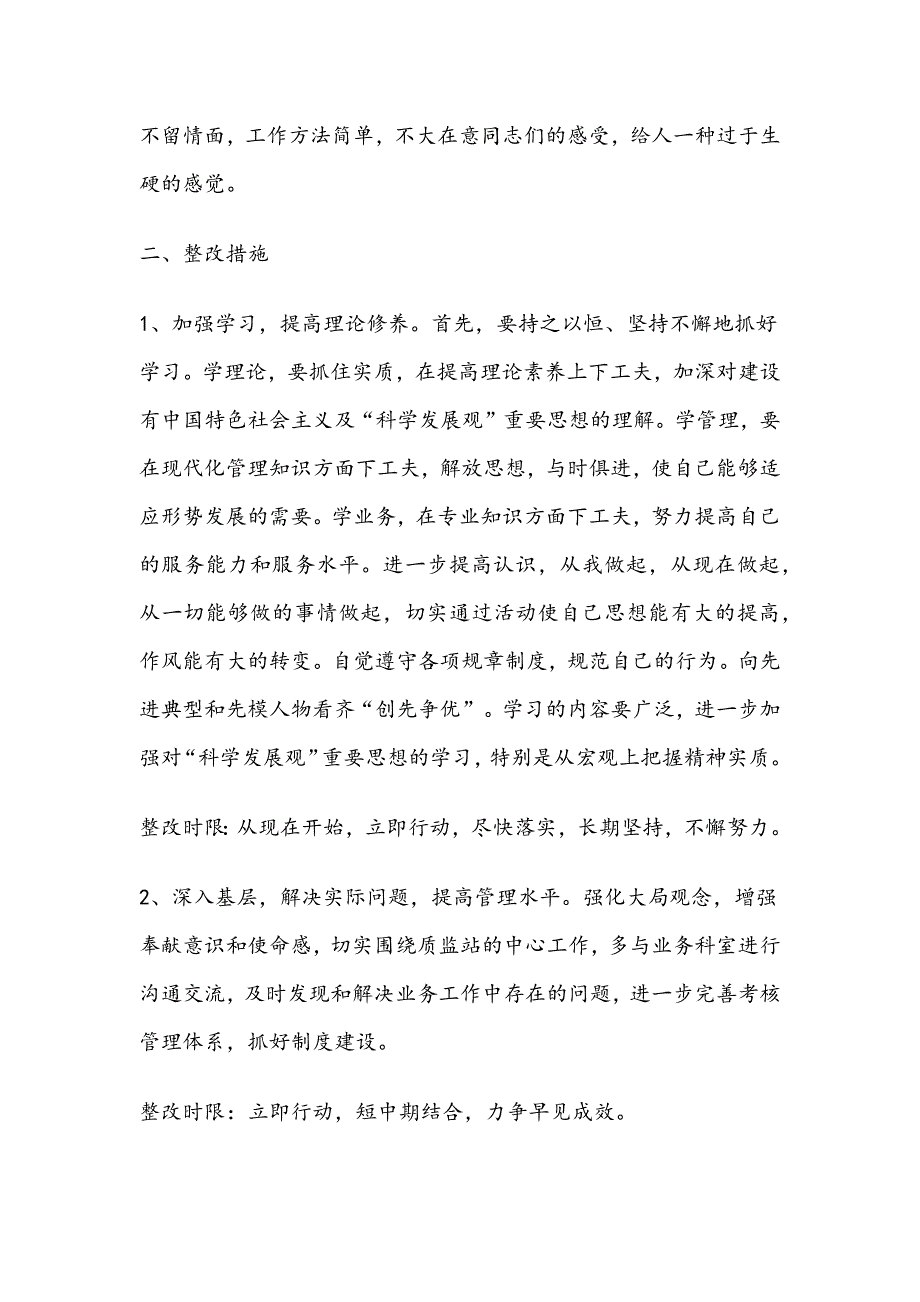 不留情面，工作方法简单，不大在意同志们的感受，给人一种过于生
硬的感觉。
二、整改措施
1、加强学习，提高理论修养。首先，要持之以恒、坚持不懈地抓好
学习。学理论，要抓住实质，在提高理论素养上下工夫，加深对建设
有中国特色社会主义及“科学发展观”重要思想的理解。学管理，要
在现代化管理知识方面下工夫，解放思想，与时俱进，使自己能够适
应形势发展的需要。学业务，在专业知识方面下工夫，努力提高自己
的服务能力和服务水平。进一步提高认识，从我做起，从现在做起，
从一切能够做的事情做起，切实通过活动使自己思想能有大的提高，
作风能有大的转变。自觉遵守各项规章制度，规范自己的行为。向先
进典型和先模人物看齐“创先争优”。学习的内容要广泛，进一步加
强对“科学发展观”重要思想的学习，特别是从宏观上把握精神实质。
整改时限：从现在开始，立即行动，尽快落实，长期坚持，不懈努力。
2、深入基层，解决实际问题，提高管理水平。强化大局观念，增强
奉献意识和使命感，切实围绕质监站的中心工作，多与业务科室进行
沟通交流，及时发现和解决业务工作中存在的问题，进一步完善考核
管理体系，抓好制度建设。
整改时限：立即行动，短中期结合，力争早见成效。